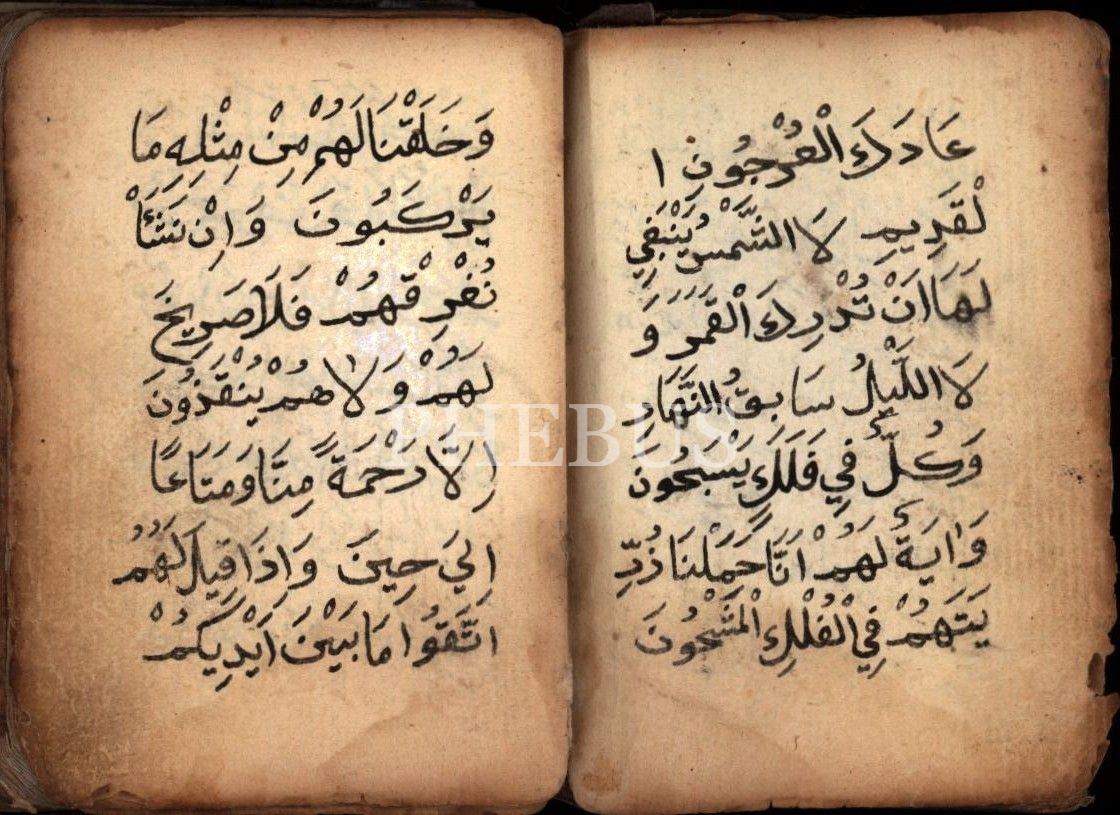 عَادَ كَ الْعُرْجُونِ ا
لْقَدِيمِ لَا الشَّمْسُ يَنْبَغِي
لَهَا اَنْ تُدْرِكَ الْقَمَرَ وَ
لَا اللَّيْلُ سَابِقُ النَّهَارِ
وَكُلٌّ فِي فَلَكٍ يَسْبَحُونَ
وَاٰيَةٌ لَهُمْ اَنَّا حَمَلْنَا ذُرِّ
يَتَهُمْ فِي الْفُلْكِ الْمَشْحُونَ
وَخَلَقْنَا لَهُمْ مِنْ مِثْلِهِ مَا
يَرْكَبُونَ وَاِنْ نَشَأْ
نُغْرِقْهُمْ فَلَا صَرِيخَ
لَهُمْ وَلَا هُمْ يُنْقَذُونَ
اِلَّا رَحْمَةً مِنَّا وَمَتَاعًا
اِلَي حِينَ وَاِذَا قِيلَ لَهُمُ
اتَّقُوا مَا بَيْنَ اَيْدِيكُمْ
PHEBUS